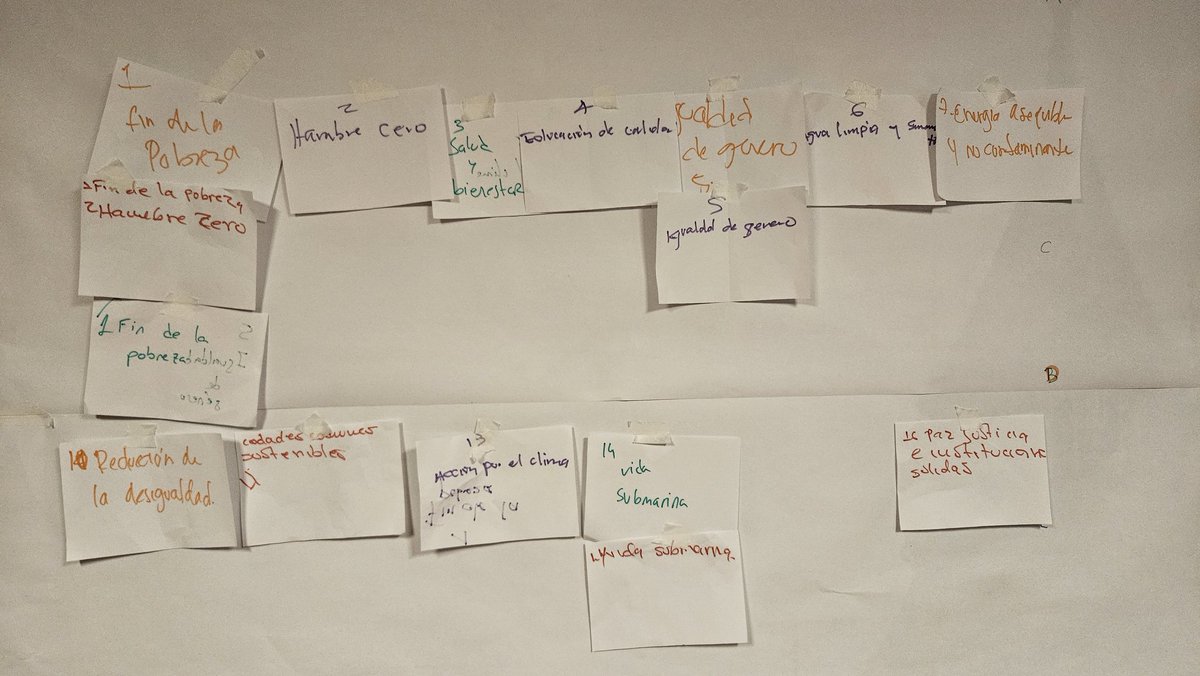 1
fin de la
Pobreza
2
Hambre cero
3
Salud
Y
bienestar
4
Educación de calidad
gualdad
de genero
5
6
gua limpia y
7. Energia asequible
Y no contaminante
1 Fin de la pobreza
2 Hambre Zero
5
Igualdad de genero
1 Fin de la
pobreza
5
Igualdad
de
genero
10 Reducción de
la desigualdad.
sostenibles
11
13
Acción por el clima
14
vida
submarina
16 Paz justicia
e institucione
solidas
14 vida submarina
C
B